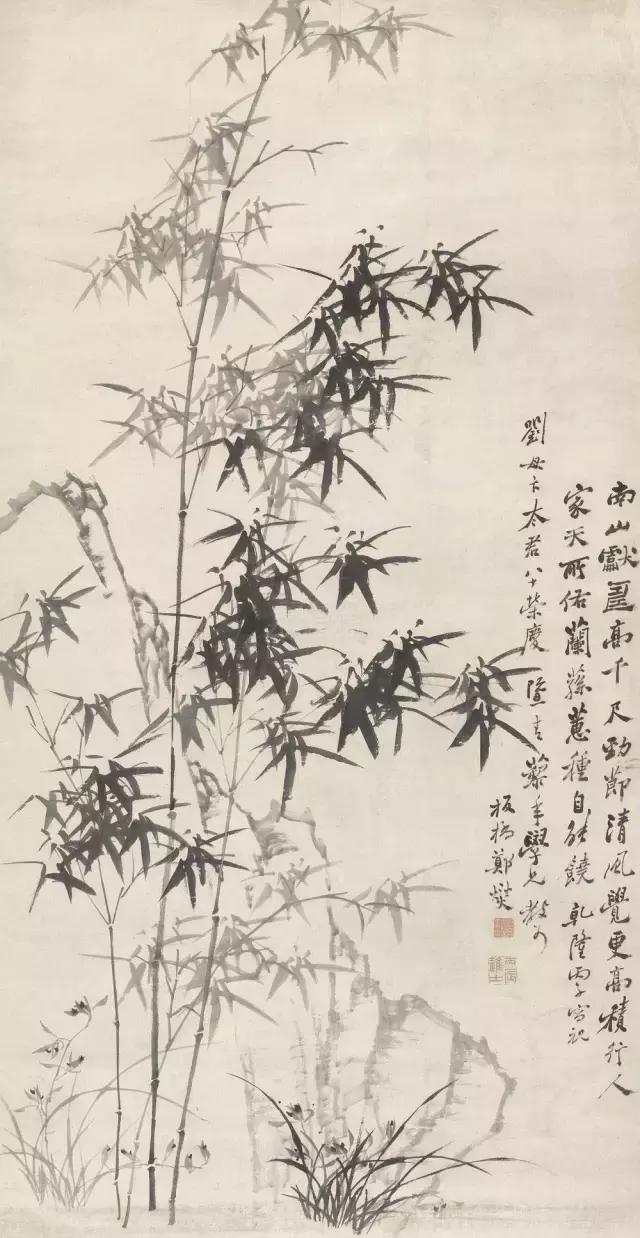 南山獻壽高千尺勁節清風覺更高積行人
家天所佑蘭蓀蕙種自能饒 乾隆丙子寫祝
劉母卞太君八十榮慶 暨青藜年學兄教
板橋鄭燮
丙辰進士